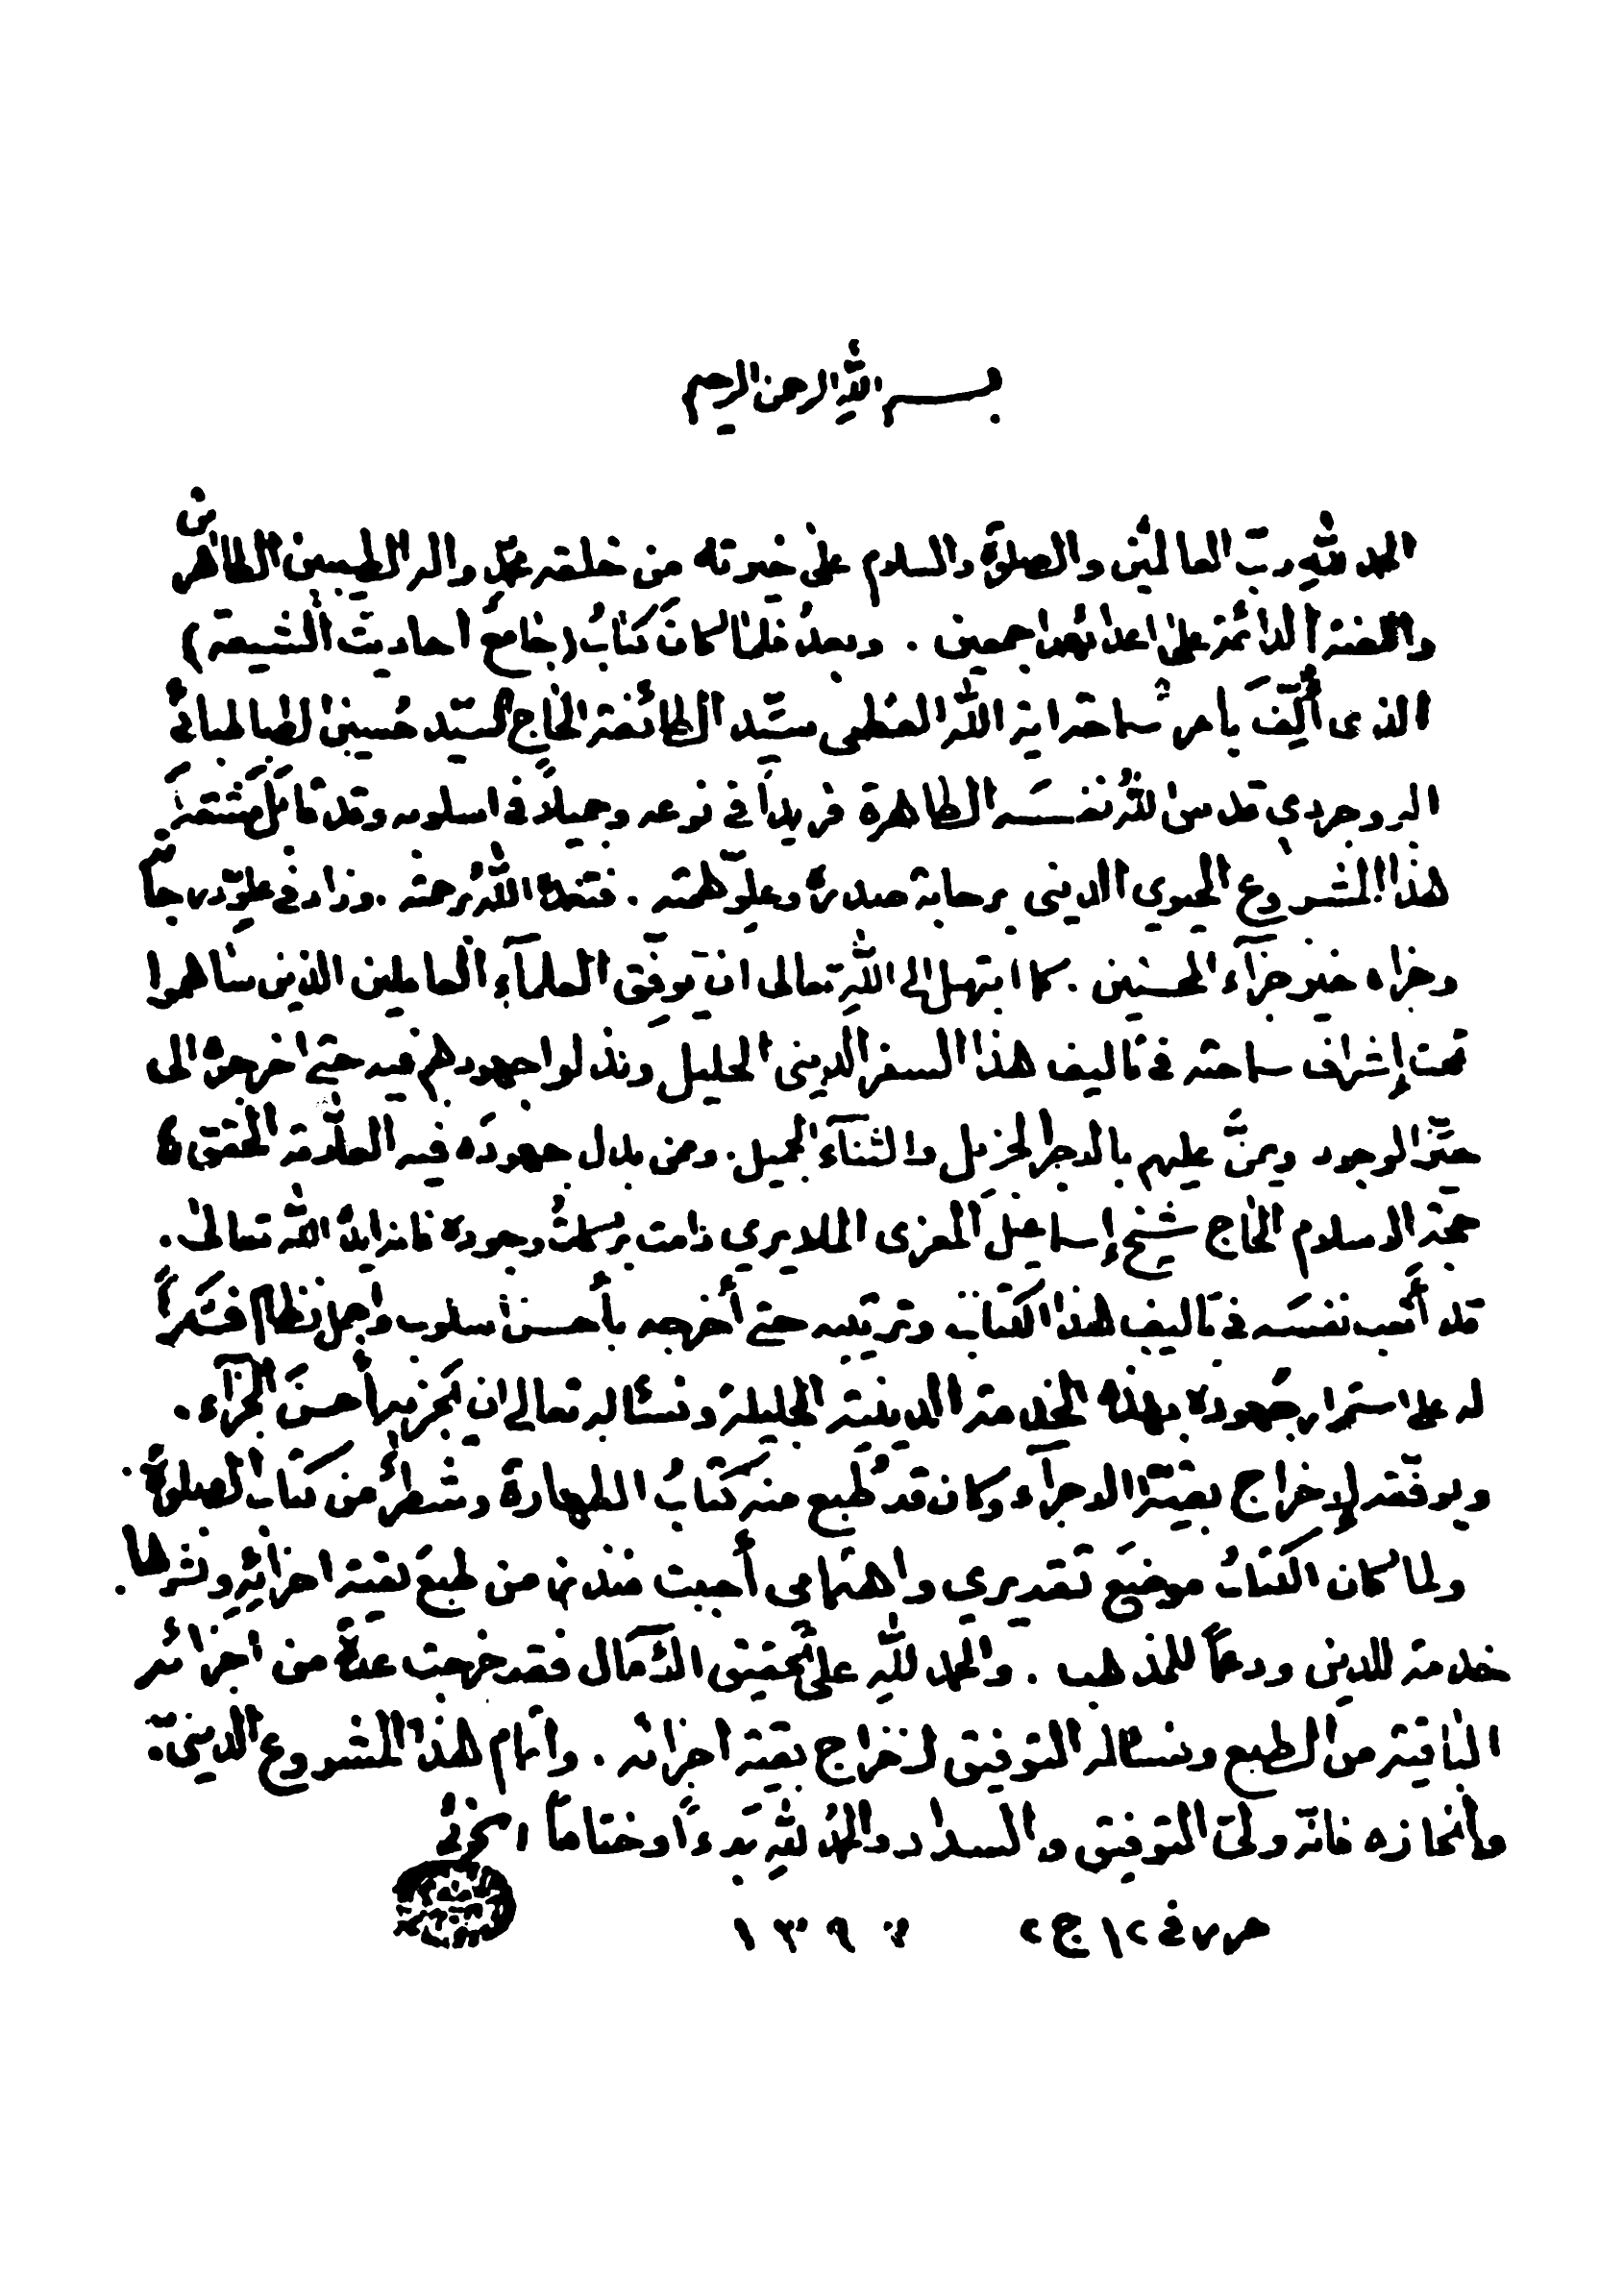 بسم الله الرحمن الرحيم
الحمد للهِ ربّ العالمين والصلوة والسلام على خيرته من خلقه محمّدٍ واله الطيبين الطاهرين
واللعنة الدائمة على اعدائهم اجمعين . وبعدُ فلما كانَ كتابُ (جامعُ احاديث الشيعة)
الذى أُلِّفَ بامر سماحة اية الله العظمى سيّد الطائفة الحاج السيّد حُسين الطباطبائي
البروجردي قدس اللهُ نفسَه الطاهرة فريداً في نوعه وجميلاً في اسلوبه وقد قابَلَ مشقةَ
هذا المشروع الحيوي الديني برحابة صدره وعلوّ همته . فتغمده اللهُ برحمته . وزاد في علوّ درجاته
وجزاه خير جزآء المحسنين . كما ابتهل إلى اللهِ تعالى ان يوفِّق العلمآءِ العاملين الذين ساهموا
تحت إشراف سماحته في تاليف هذا السفر الديني الجليل وبذلوا جهودهم فيه حتى اخرجوه الى
حيّز الوجود ويمنَّ عليهم بالاجر الجزيل والثنآء الجميل . وممن بذل جهودَه فيه العلّامة المحقق
حجة الاسلام الحاج شيخ إسماعيل المعزى الملايري دامت بركاتُ وجوده فانه ايده الله تعالى .
قد أتعب نفسَه في تاليف هذا الكتاب وترتيبه حتى أخرجه بأحسن اسلوب واجمل نظام فشكراً
له على استمرار جُهوده بهذه الخدمة الدينية الجليلة ونسئاله تعالى ان يَجزيه أحسنَ الجزآء .
ويوفّقه لإخراج بقيّة الاجزآء وكان قد طُبع منه كتابُ الطهارة وشطرٌ من كتاب الصلوة .
ولما كان الكتابُ موضعَ تقديري واهتمامى أحببت منذ زمن طبعَ بقية اجزائِهِ ونشرها .
خدمة للدين ودعماً للمذهب . والحمد للهِ على تحقيق الآمال فقد خرجت عدةٌ من اجزائه
الباقية من الطبع ونسئاله التوفيق لاخراج بقية اجزائه . واتمام هذا المشروع الدينيّ .
وأنجازه فانّه وليّ التوفيق والسداد والحمدُ للهِ بَدءاً وختاماً الخوئي
حرر في ١٢ ج٢ ١٣٩٦